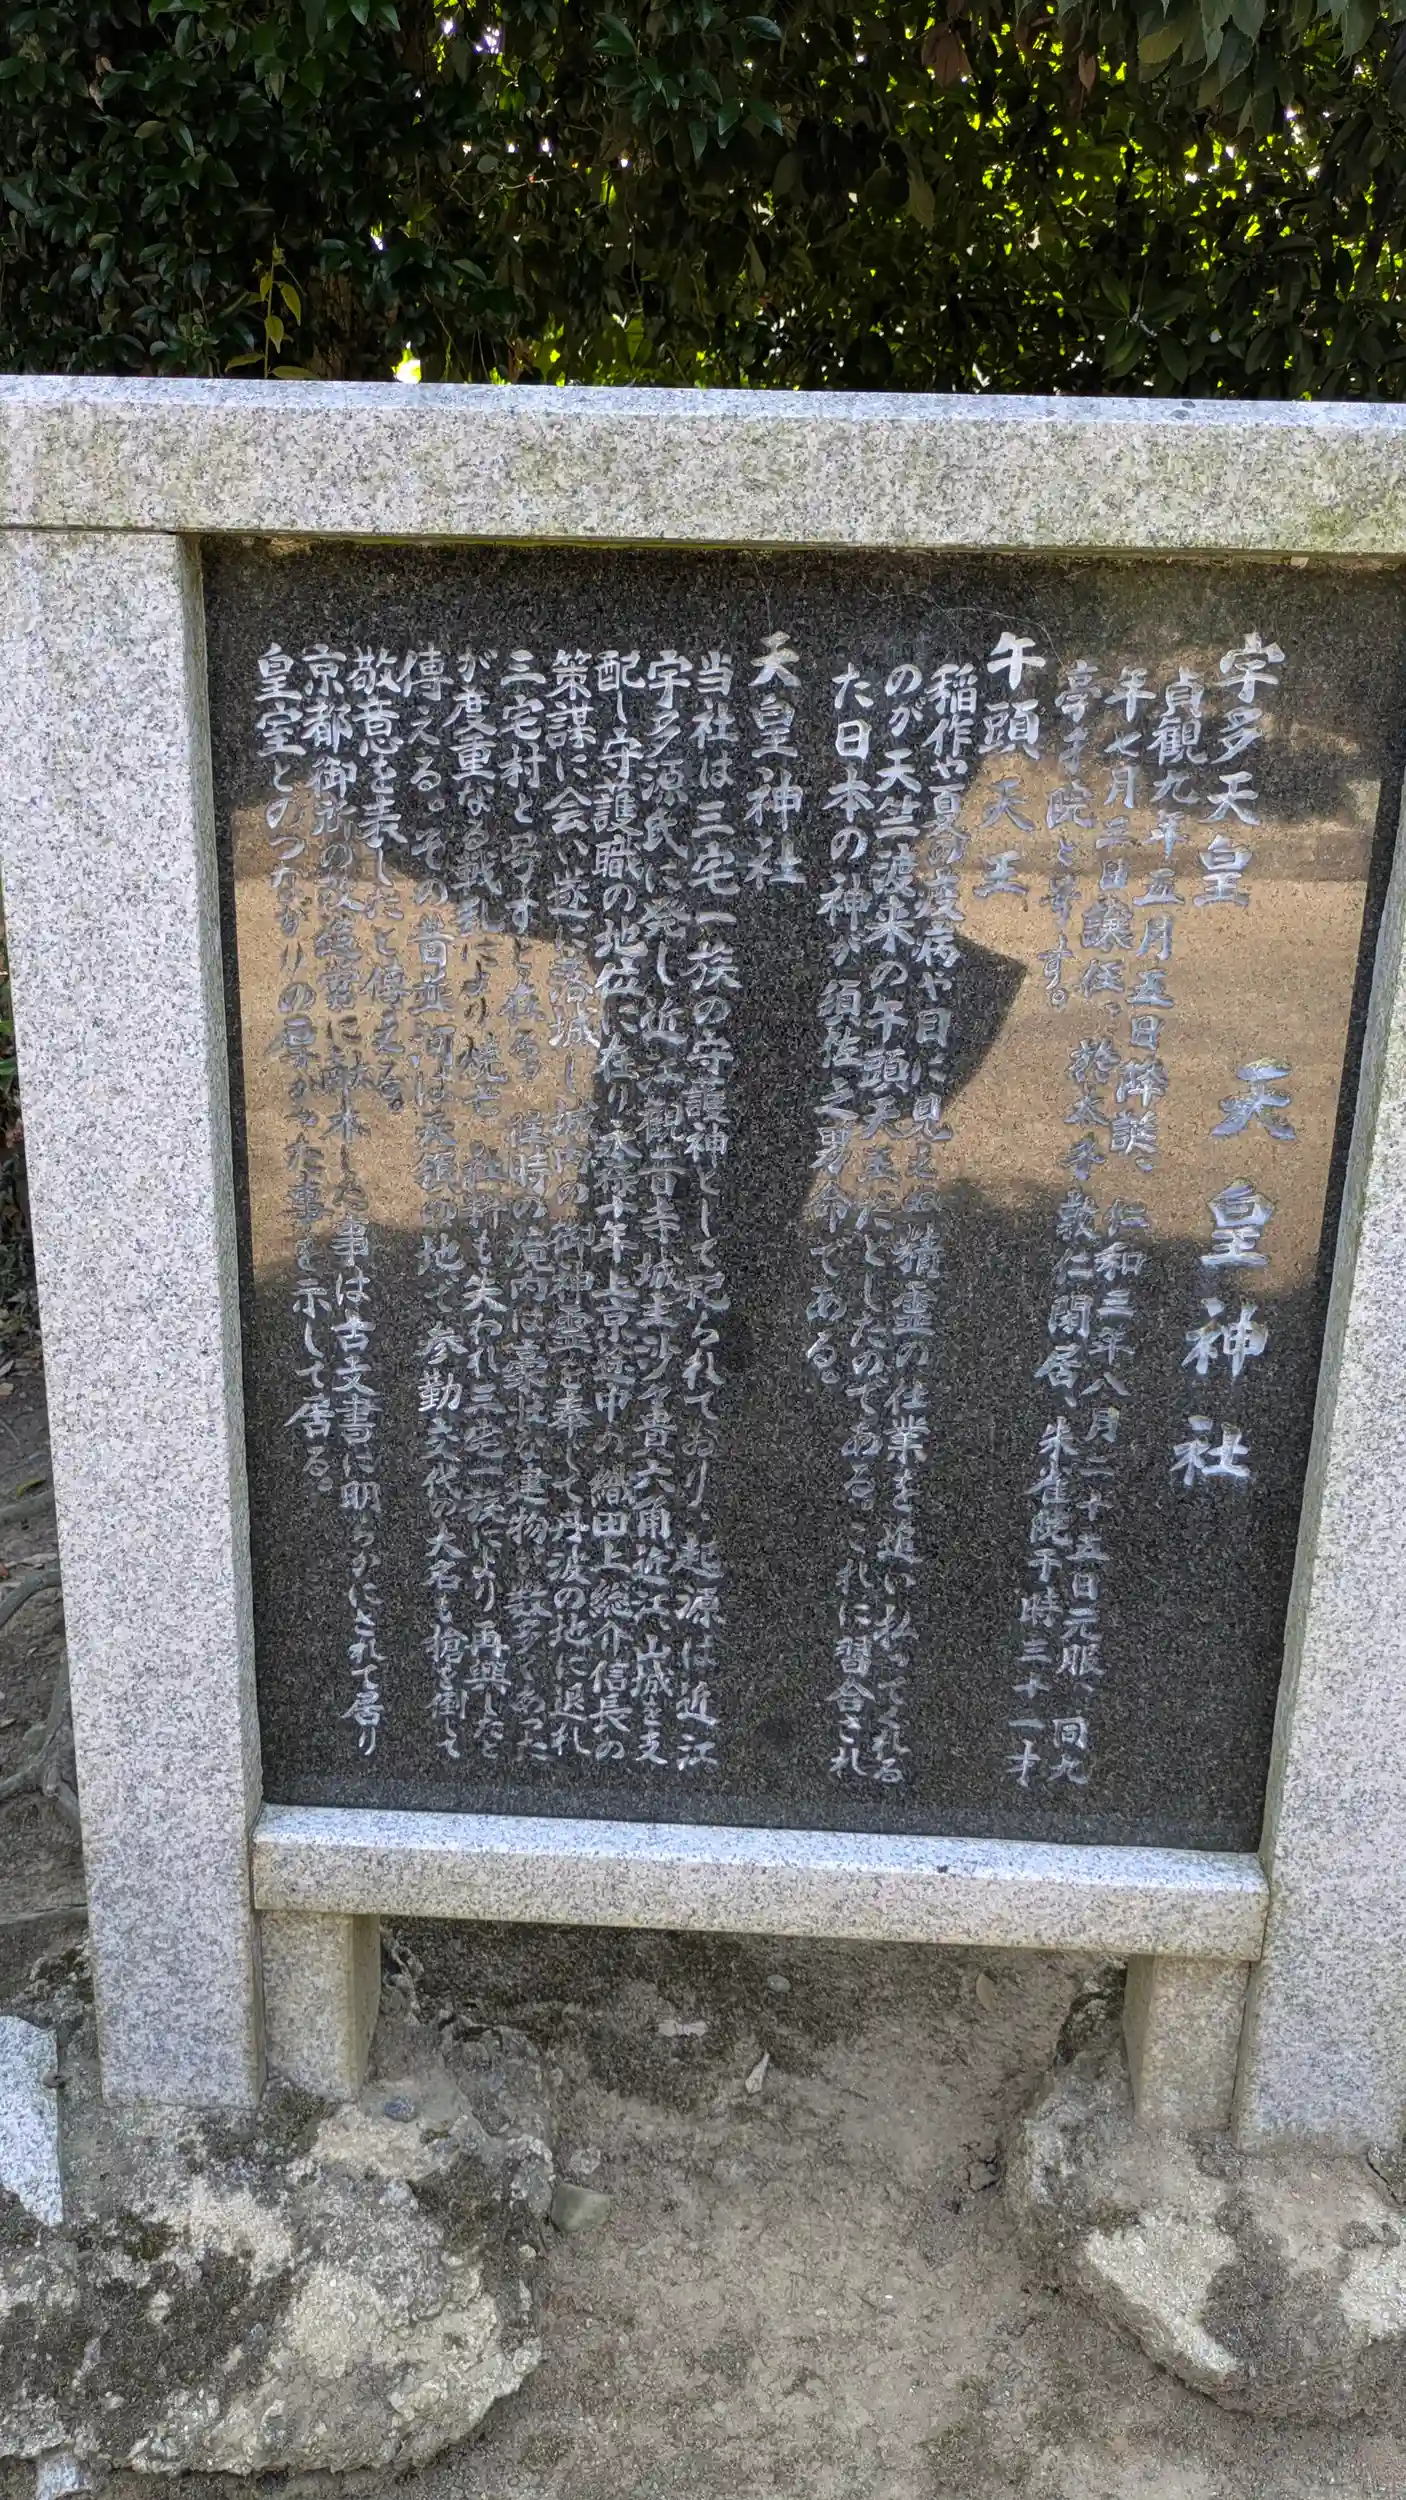 宇多天皇　天皇神社
貞観九年五月五日降誕、仁和三年八月二十五日元服、同九
年七月三日譲位、於太子敦仁閑居、朱雀院于時三十一才
亭子院と号す。
午頭天王
稲作や夏の疫病や目に見えぬ精霊の仕業を追い払ってくれる
のが天竺渡来の午頭天王だとしたのである。これに習合され
た日本の神が須佐之男命である。
天皇神社
当社は三宅一族の守護神として祀られており、起源は近江
宇多源氏に発し近江観音寺城主沙々貴六角近江、山城を支
配し守護職の地位に在り永禄十年上京途中の織田上総介信長の
策謀に会い遂に落城し城内の御神霊を奉じて丹波の地に退れ
三宅村と号すと在る。往時の境内は豪壮な建物が数多くあった
が度重なる戦乱により焼亡、社軒も失われ三宅一族により再興したと
傳える。その昔並河は天領の地で参勤交代の大名も槍を倒して
敬意を表したと傳える。
京都御所の改造営に献木した事は古文書に明らかにされて居り
皇室とのつながりの厚かった事を示して居る。